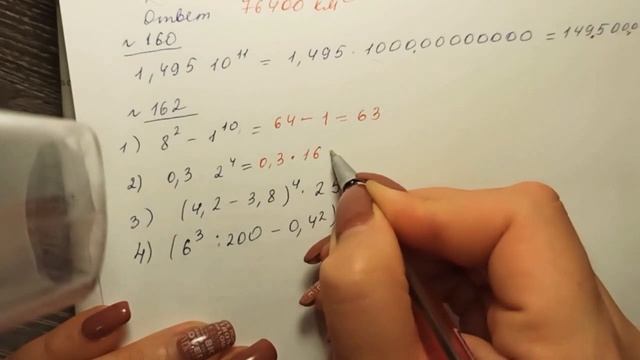 Ответ 76400 км²
№ 160
1,495 10¹¹ = 1,495 · 100000000000 = 149500,0
№ 162
1) 8² - 1¹⁰ = 64 - 1 = 63
2) 0,3 2⁴ = 0,3 · 16
3) (4,2 - 3,8)⁴ · 2
4) (6³ : 200 - 0,4²)